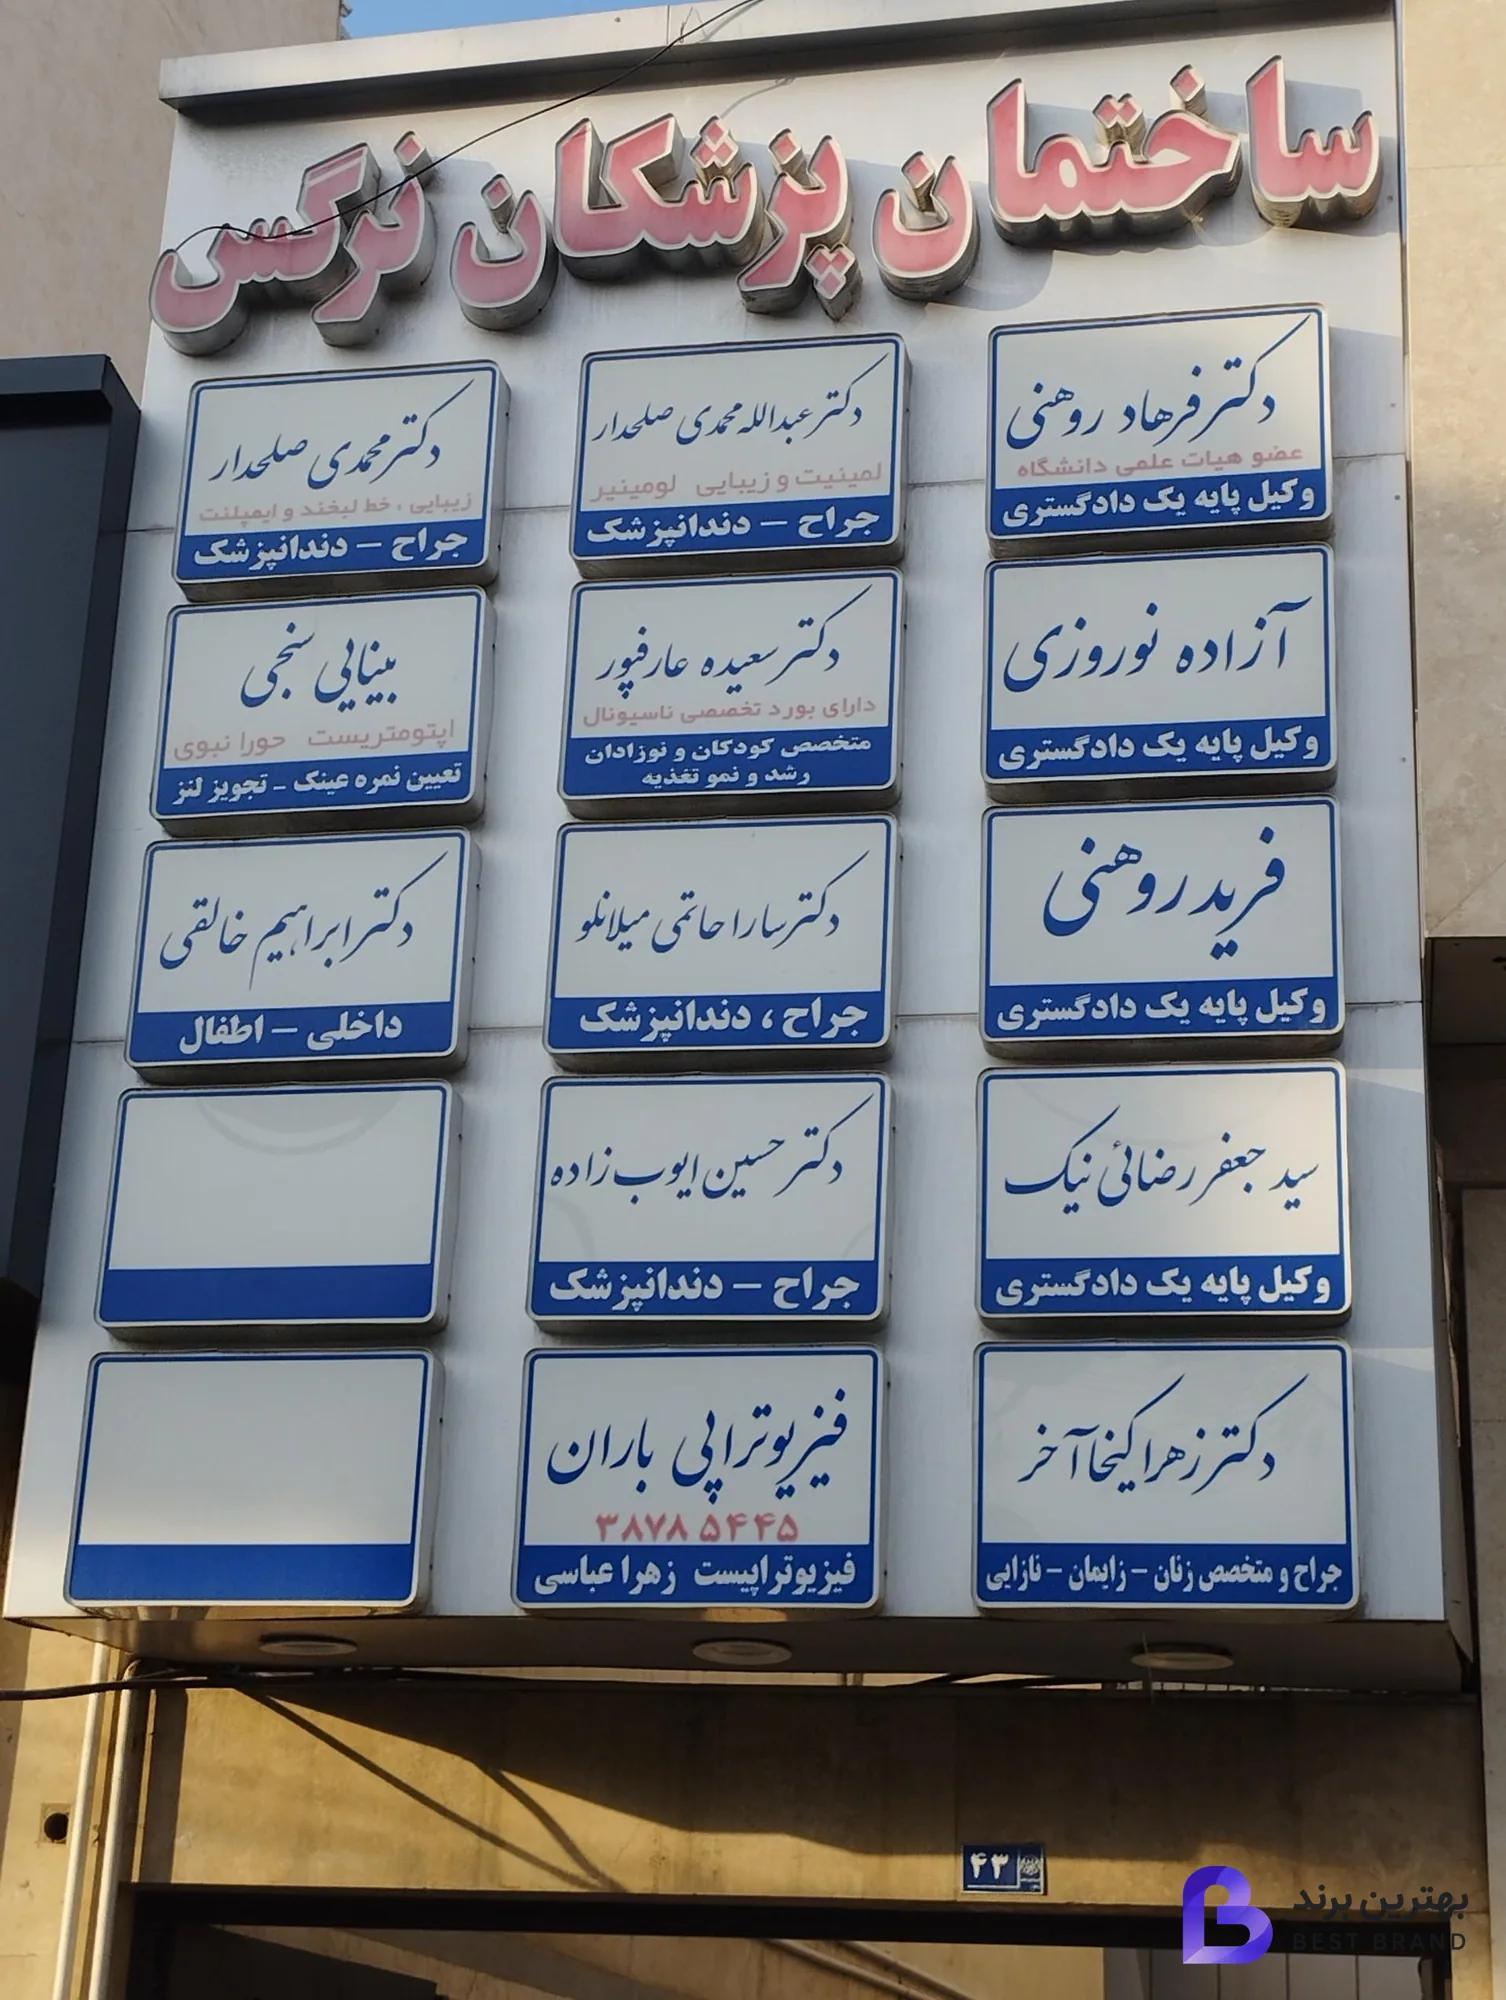 ساختمان پزشکان نرگس
دکتر فرهاد روهنی
عضو هیات علمی دانشگاه
وکیل پایه یک دادگستری
دکتر عبدالله محمدی صلحدار
لمینیت و زیبایی لومینیر
جراح – دندانپزشک
دکتر محمدی صلحدار
زیبایی ، خط لبخند و ایمپلنت
جراح – دندانپزشک
آزاده نوروزی
وکیل پایه یک دادگستری
دکتر سعیده عارفپور
دارای بورد تخصصی ناسیونال
متخصص کودکان و نوزادان
رشد و نمو تغذیه
بینایی سنجی
اپتومتریست حورا نبوی
تعیین نمره عینک - تجویز لنز
فرید روهنی
وکیل پایه یک دادگستری
دکتر سارا حاتمی میلانلو
جراح ، دندانپزشک
دکتر ابراهیم خالقی
داخلی – اطفال
سید جعفر رضائی نیک
وکیل پایه یک دادگستری
دکتر حسین ایوب زاده
جراح – دندانپزشک
دکتر زهرا کیخا آخر
جراح و متخصص زنان – زایمان – نازایی
فیزیوتراپی باران
۳۸۷۸ ۵۴۴۵
فیزیوتراپیست زهرا عباسی
۴۳
بهترین برند
BEST BRAND